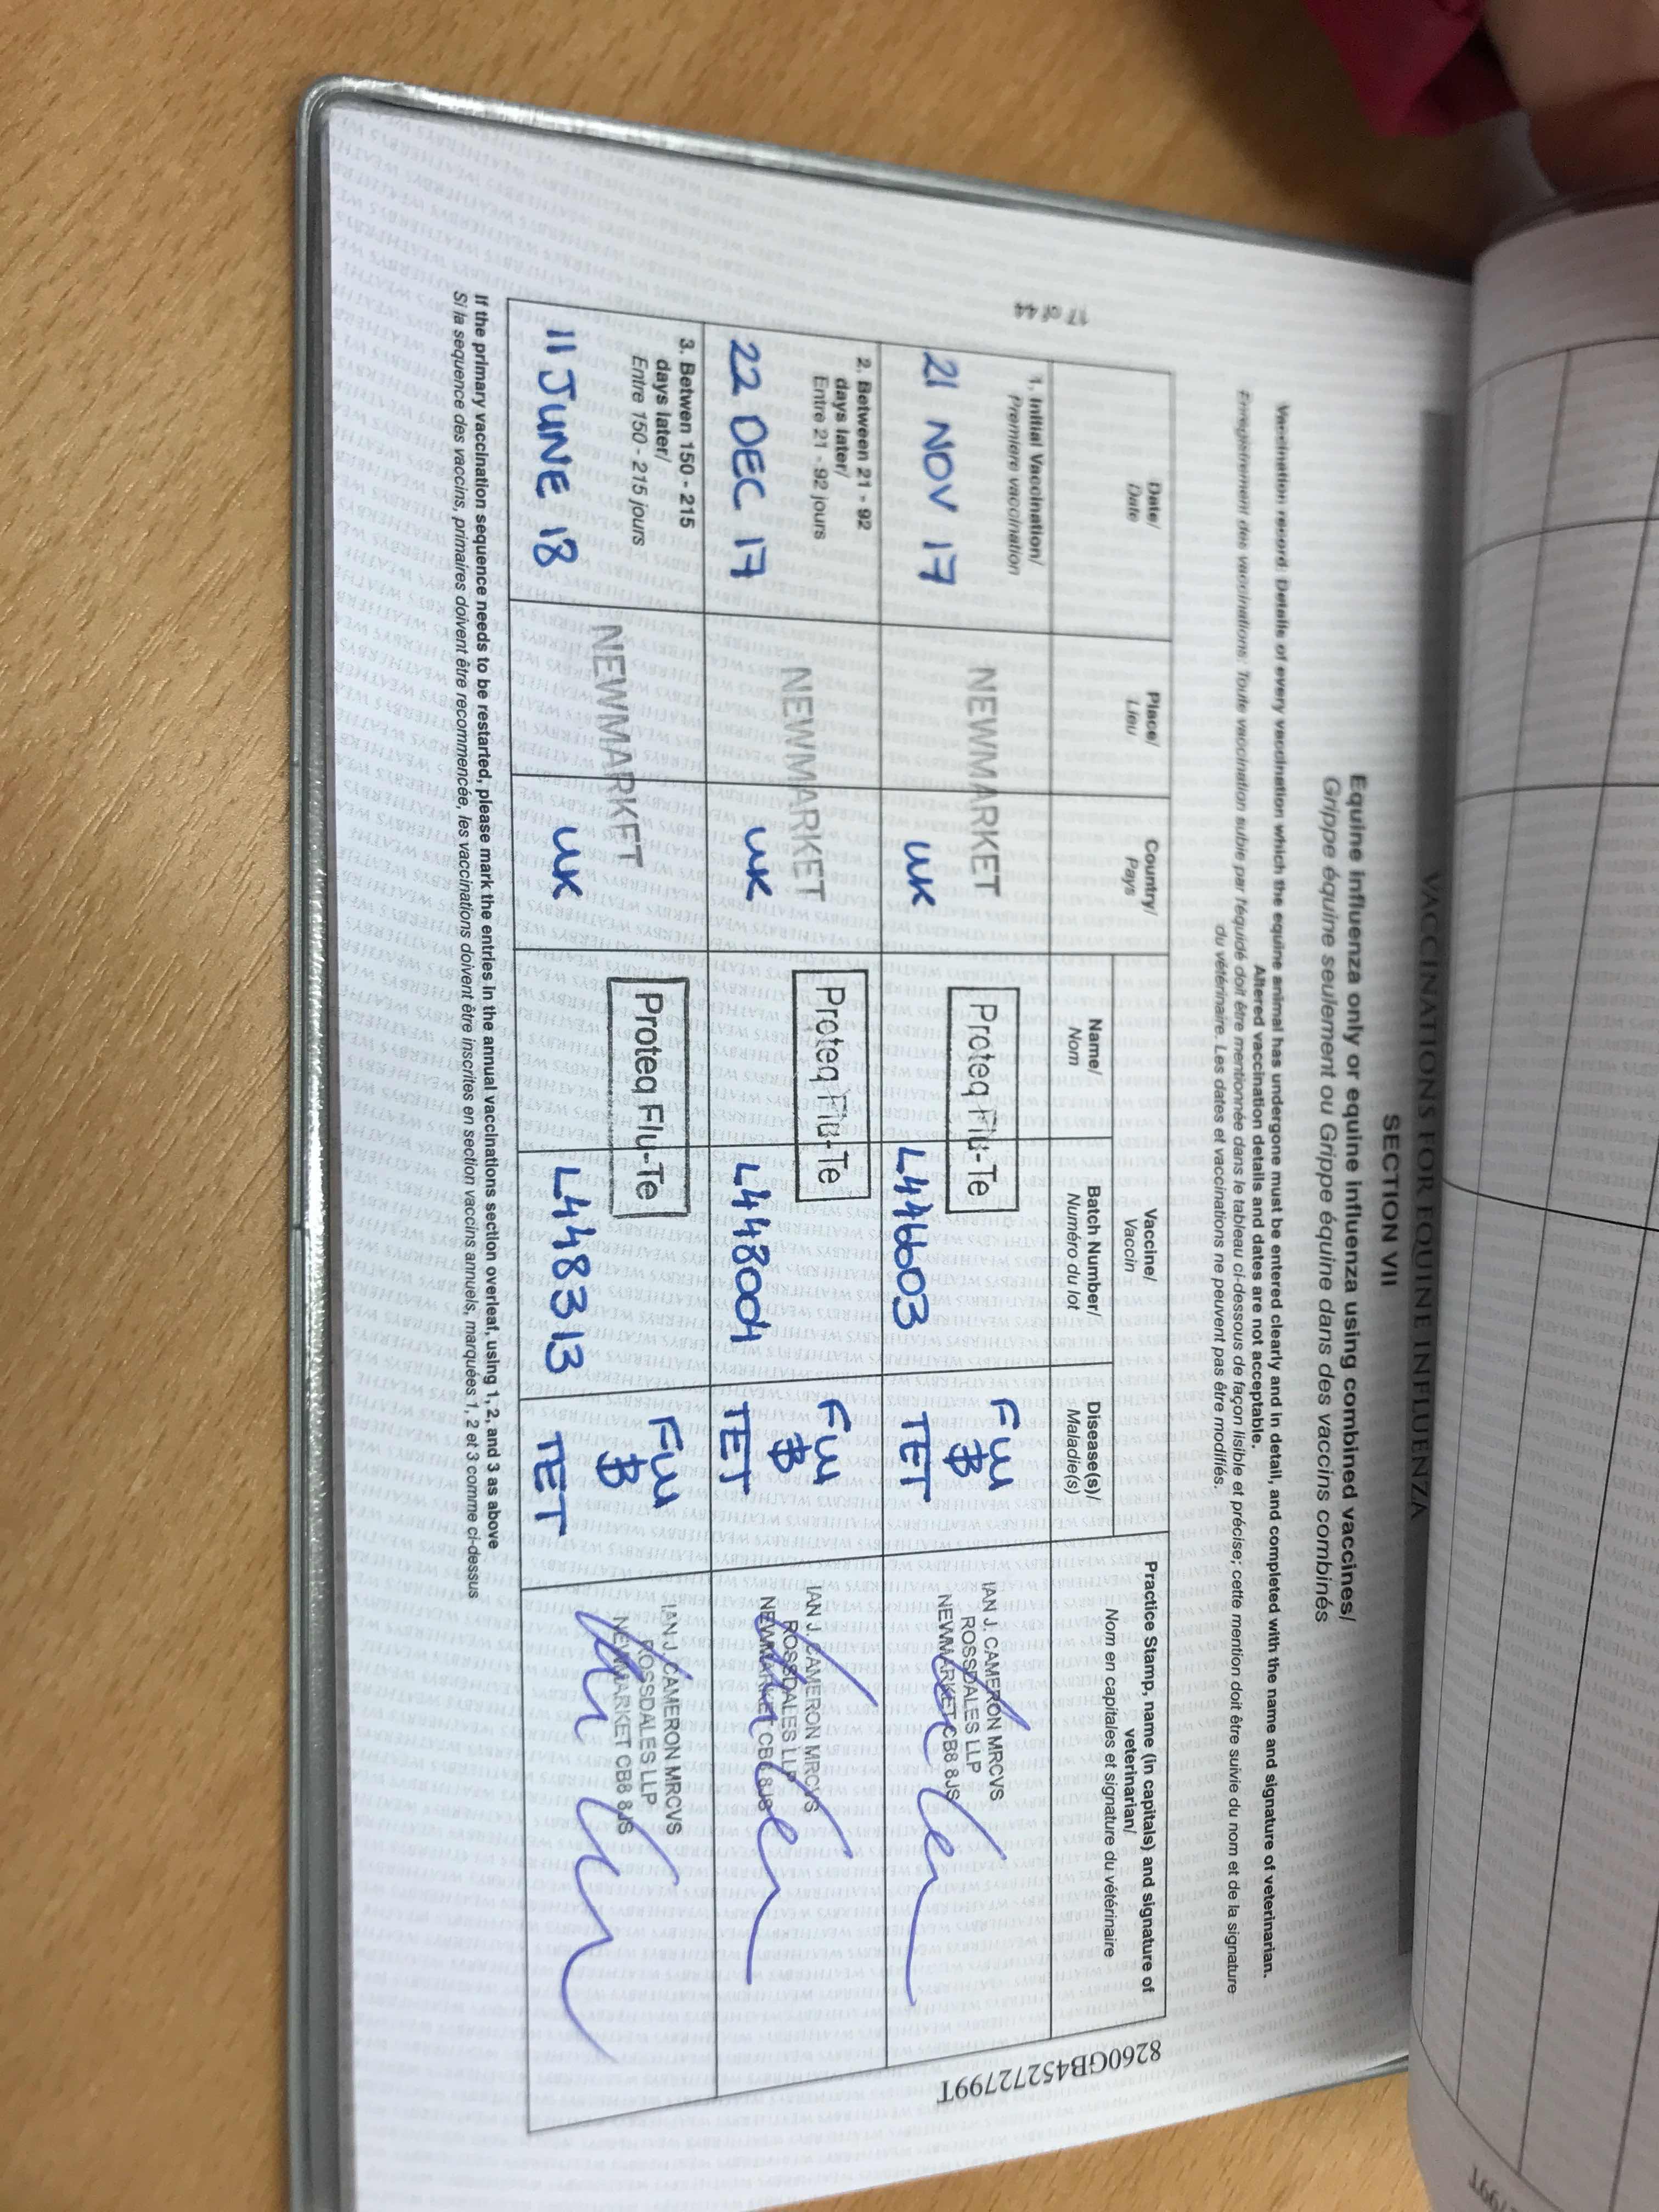 VACCINATIONS FOR EQUINE INFLUENZA
SECTION VII
Equine influenza only or equine influenza using combined vaccines/
Grippe équine seulement ou Grippe équine dans des vaccins combinés
Vaccination record. Details of every vaccination which the equine animal has undergone must be entered clearly and in detail, and completed with the name and signature of veterinarian.
Altered vaccination details and dates are not acceptable.
Enregistrement des vaccinations: Toute vaccination subie par l'équidé doit être mentionnée dans le tableau ci-dessous de façon lisible et précise; cette mention doit être suivie du nom et de la signature
du vétérinaire. Les dates et vaccinations ne peuvent pas être modifiés.
Date/
Date
Place/
Lieu
Country/
Pays
Vaccine/
Vaccin
Name/
Nom
Batch Number/
Numéro du lot
Disease(s)/
Maladie(s)
Practice Stamp, name (in capitals) and signature of
veterinarian/
Nom en capitales et signature du vétérinaire
1. Initial Vaccination/
Premiere vaccination
21 NOV 17
NEWMARKET
UK
Proteq Flu-Te
L446603
FLU
TET
IAN J. CAMERON MRCVS
ROSSDALES LLP
NEWMARKET CB8 8JS
2. Between 21 - 92
days later/
Entre 21 - 92 jours
22 DEC 17
NEWMARKET
UK
Proteq Flu-Te
L448004
FLU
TET
IAN J. CAMERON MRCVS
ROSSDALES LLP
NEWMARKET CB8 8JS
3. Between 150 - 215
days later/
Entre 150 - 215 jours
11 JUNE 18
NEWMARKET
UK
Proteq Flu-Te
L448313
FLU
TET
IAN J. CAMERON MRCVS
ROSSDALES LLP
NEWMARKET CB8 8JS
If the primary vaccination sequence needs to be restarted, please mark the entries in the annual vaccinations section overleaf, using 1, 2, and 3 as above
Si la sequence des vaccins, primaires doivent être recommencée, les vaccinations doivent être inscrites en section vaccins annuels, marquées 1, 2 et 3 comme ci-dessus
17 of 44
8260GB45272799T